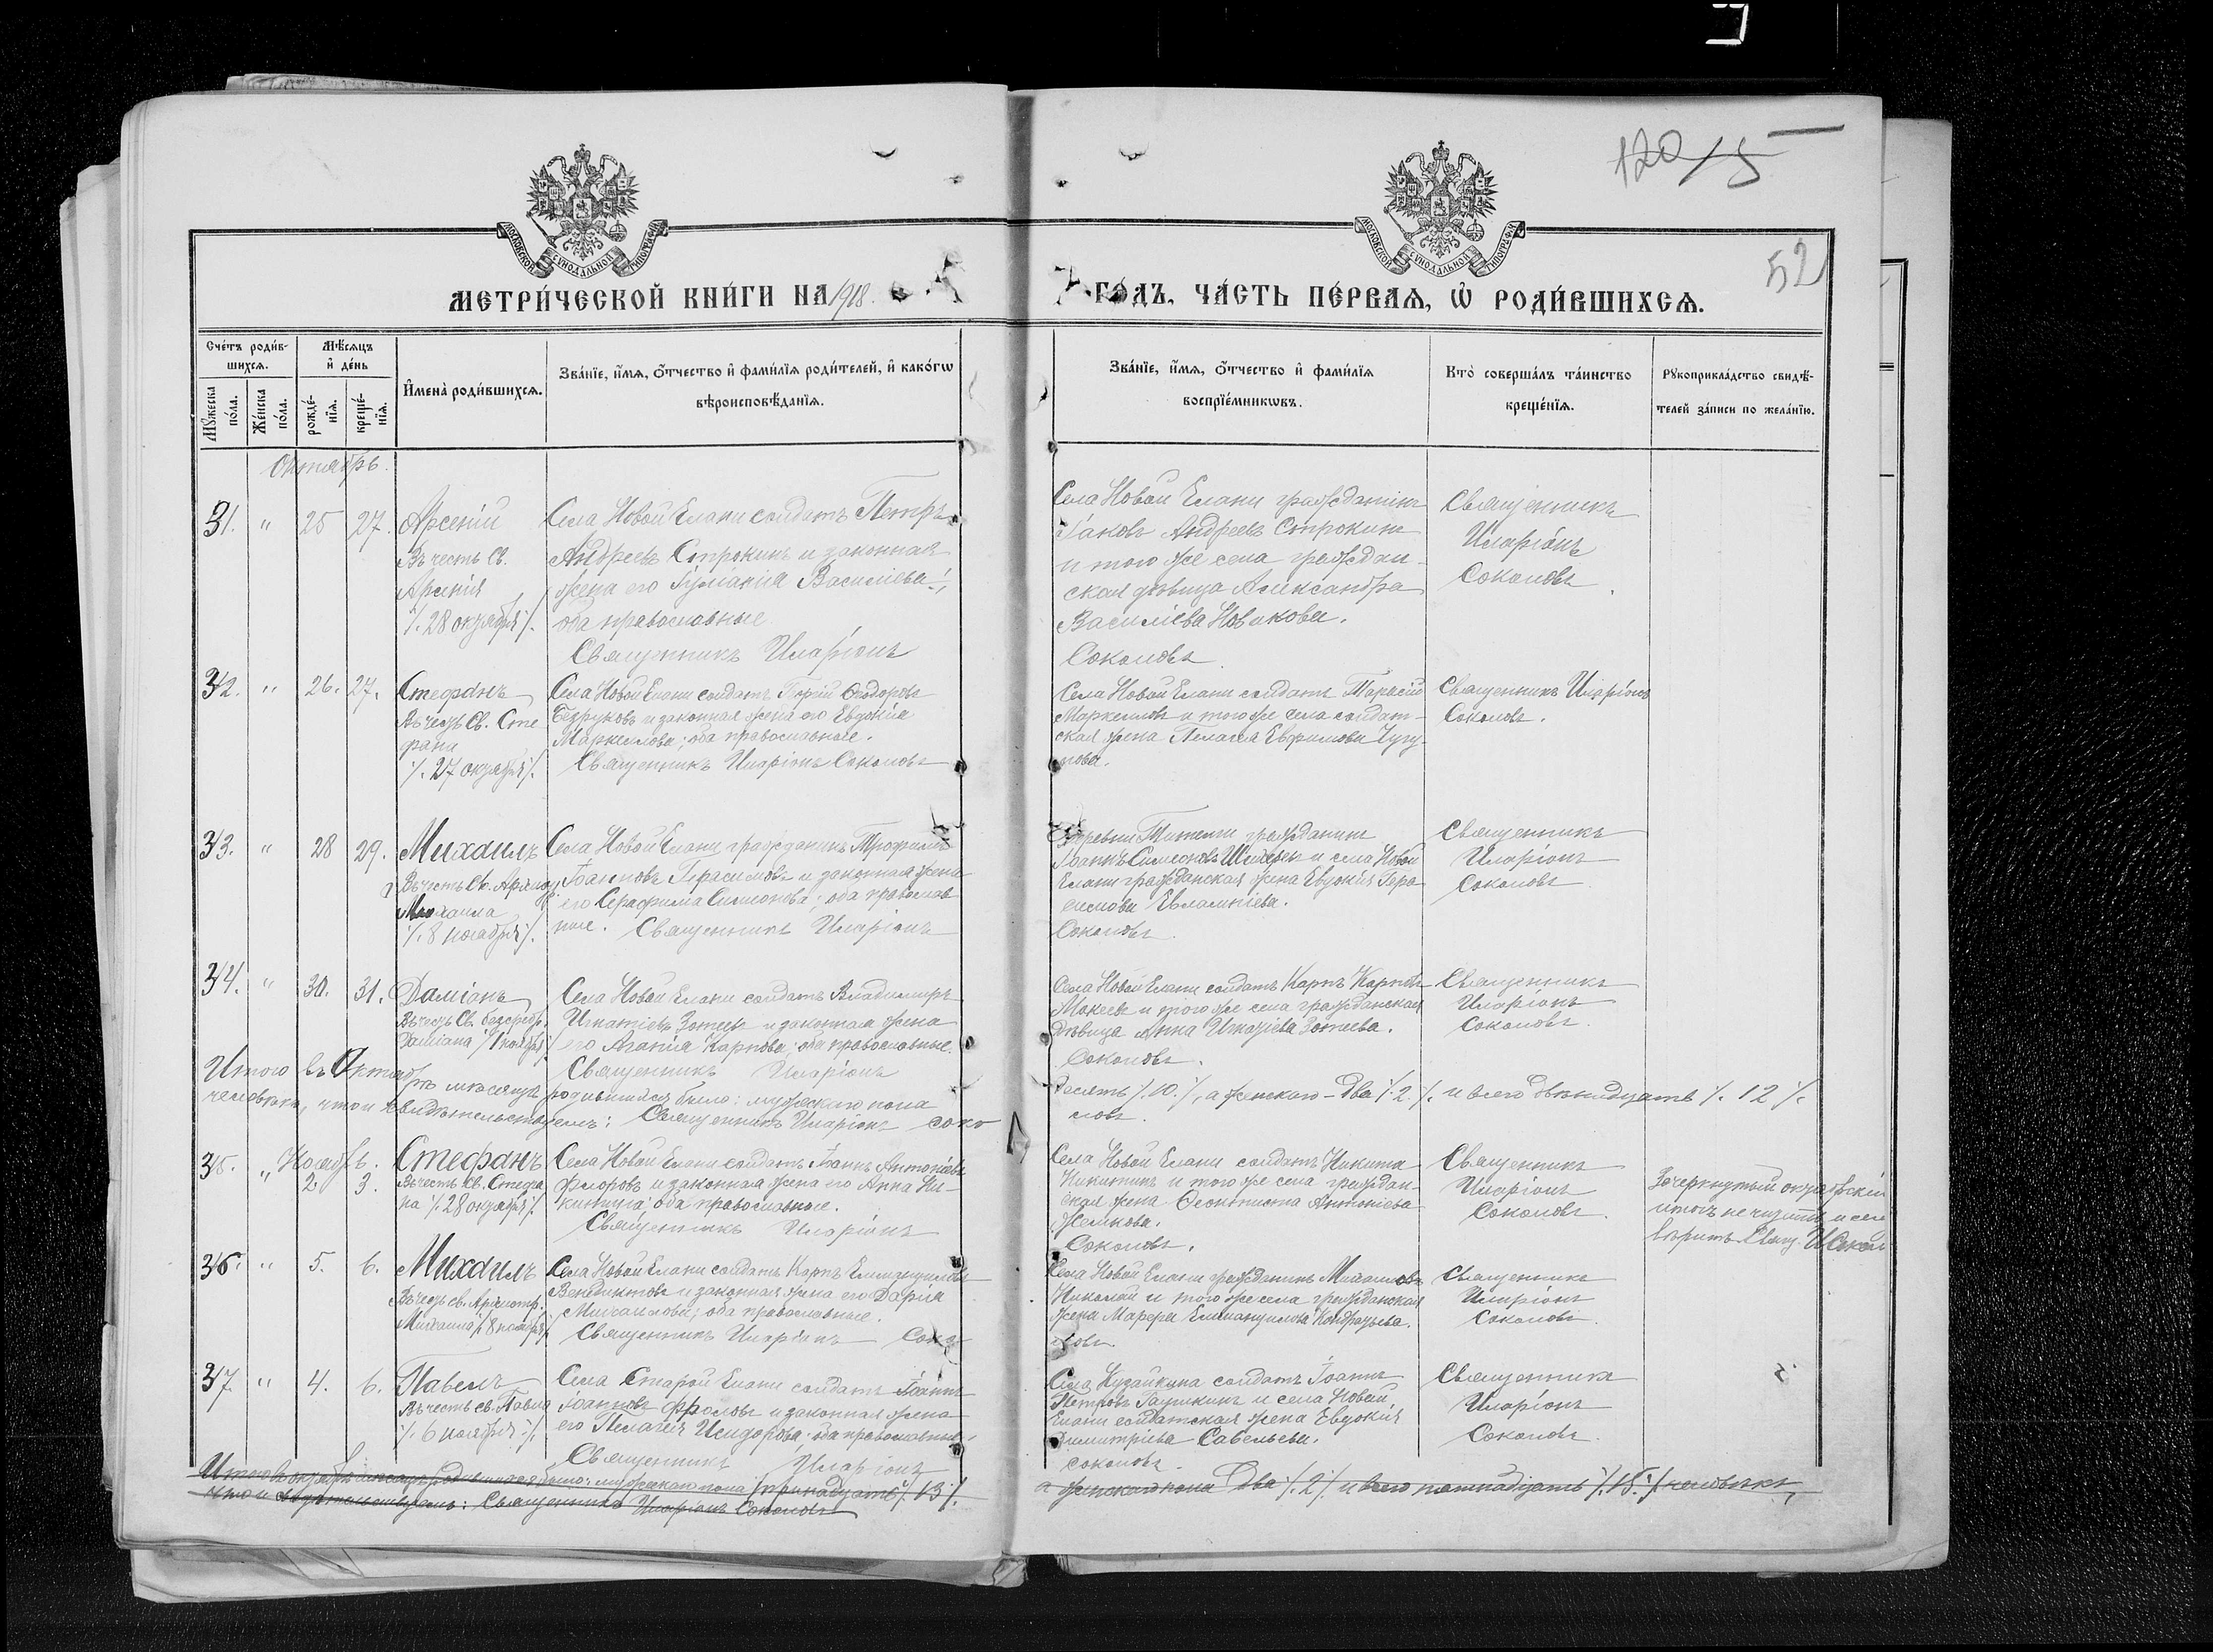 120/5
52
МОСКОВСКОЙ СѴНОДАЛЬНОЙ ТИПОГРАФІИ
МОСКОВСКОЙ СѴНОДАЛЬНОЙ ТИПОГРАФІИ
МЕТРИ́ЧЕСКОЙ КНИ́ГИ НА 1918.
ГО́ДЪ, ЧА́СТЬ ПЕ́РВАѦ, Ѡ РОДИ́ВШИХСѦ.
Сче́тъ роди́в-
шихсѧ.
Мꙋ́жеска по́ла.
Же́нска по́ла.
Мѣ́сѧцъ
и҆ де́нь
рожде́-
нїѧ.
креще́-
нїѧ.
И҆мена̀ роди́вшихсѧ.
Зва́нїе, и҆́мѧ, ѻ҆́тчество и҆ фами́лїѧ роди́телей, и҆ како́гѡ
вѣроисповѣ́данїѧ.
Зва́нїе, и҆́мѧ, ѻ҆́тчество и҆ фами́лїѧ
воспрїе́мникѡвъ.
Кто̀ соверша́лъ та́инство
креще́нїѧ.
Рꙋкоприкла́дство свидѣ́-
телей за́писи по жела́нїю.
Октябрь.
31. " 25 27.
Арсеній
Въ честь Св.
Арсенія
/. 28 октября /.
Села Новой Елани солдатъ Петръ
Андреевъ Строкинъ и законная
жена его Іуліанія Василіева;
оба православные
Священникъ Иларіонъ
Села Новой Елани гражданинъ
Іаковъ Андреевъ Строкинъ
и того же села граждан-
ская дѣвица Александра
Василіева Новикова.
Соколовъ
Священникъ
Иларіонъ
Соколовъ.
32. " 26. 27.
Стефанъ
Въ честь Св. Сте
фана
/. 27 октября /.
Села Новой Елани солдатъ Ѳеодоровъ
Безруковъ и законная жена его Евдокія
Маркеллова; оба православные.
Священникъ Иларіонъ Соколовъ
Села Новой Елани солдатъ Тарасій
Маркелловъ и того же села солдат-
ская жена Пелагія Евфимова Чугу-
нова.
Священникъ Иларіонъ
Соколовъ.
33. " 28 29.
Михаилъ
Въ честь Св. Архистр.
Михаила
/. 8 ноября /.
Села Новой Елани гражданинъ Трофимъ
Іоанновъ Герасимовъ и законная жена
его Серафима Симеонова; оба православ
ные. Священникъ Иларіонъ
Деревни гражданинъ
Іоаннъ Симеоновъ и села Новой
Елани гражданская жена Евдокія Гера
симова Евлампіева.
Соколовъ
Священникъ
Иларіонъ
Соколовъ
34. " 30. 31.
Даміанъ
Въ честь Св. безсребр.
Даміана /1 ноября/
Села Новой Елани солдатъ Владимиръ
Игнатіевъ Зотеевъ и законная жена
его Агапія Карпова; оба православные.
Священникъ Иларіонъ
Села Новой Елани солдатъ Карпъ Карповъ
Мокеевъ и того же села гражданская
дѣвица Анна Игнатіева Зотеева.
Соколовъ.
Священникъ
Иларіонъ
Соколовъ.
Итого въ Октябрѣ мѣсяцѣ родившихся было: мужескаго пола
десять /. 10. /, а женскаго – два /. 2. /. и всего двѣнадцать /. 12 /.
человѣкъ, что и свидѣтельствуемъ: Священникъ Иларіонъ Соко
ловъ.
Ноябрь.
35. " 2 3.
Стефанъ
Въ честь Св. Стефа
на /. 28 октября /.
Села Новой Елани солдатъ Іоаннъ Антоніевъ
Флоровъ и законная жена его Анна Ни-
китина; оба православные.
Священникъ Иларіонъ
Села Новой Елани солдатъ Никита
Никитинъ и того же села граждан-
ская жена Ѳеоктиста Антоніева
Соколовъ.
Священникъ
Иларіонъ
Соколовъ.
Зачеркнутый октябрскій
итогъ не читать и сему
вѣрить. Свящ. И Сокол
36. " 5. 6.
Михаилъ
Въ честь св. Архистр.
Михаила /. 8 ноября /.
Села Новой Елани солдатъ Карпъ
Венедиктовъ и законная жена его Дарія
Михаилова; оба православные.
Священникъ Иларіонъ Соко
Села Новой Елани гражданинъ Михаиловъ
Николай и того же села гражданская
жена Марѳа Кондратьева.
ловъ.
Священникъ
Иларіонъ
Соколовъ.
37. " 4. 6.
Павелъ
Въ честь св. Павла
/. 6 ноября /.
Села Старой Елани солдатъ Іоаннъ
Іоанновъ Фроловъ и законная жена
его Пелагія Исидорова; оба православные.
Священникъ Иларіонъ
Села Кузайкина солдатъ Іоаннъ
Петровъ и села Новой
Елани солдатская жена Евдокія
Димитріева Савельева.
Соколовъ.
Священникъ
Иларіонъ
Соколовъ.
Итого въ октябрѣ мѣсяцѣ родившихся было: мужескаго пола тринадцать /. 13 /.
а женскаго пола два /. 2 /. и всего пятнадцать /. 15. /. человѣкъ,
что и свидѣтельствуемъ: Священникъ Иларіонъ Соколовъ